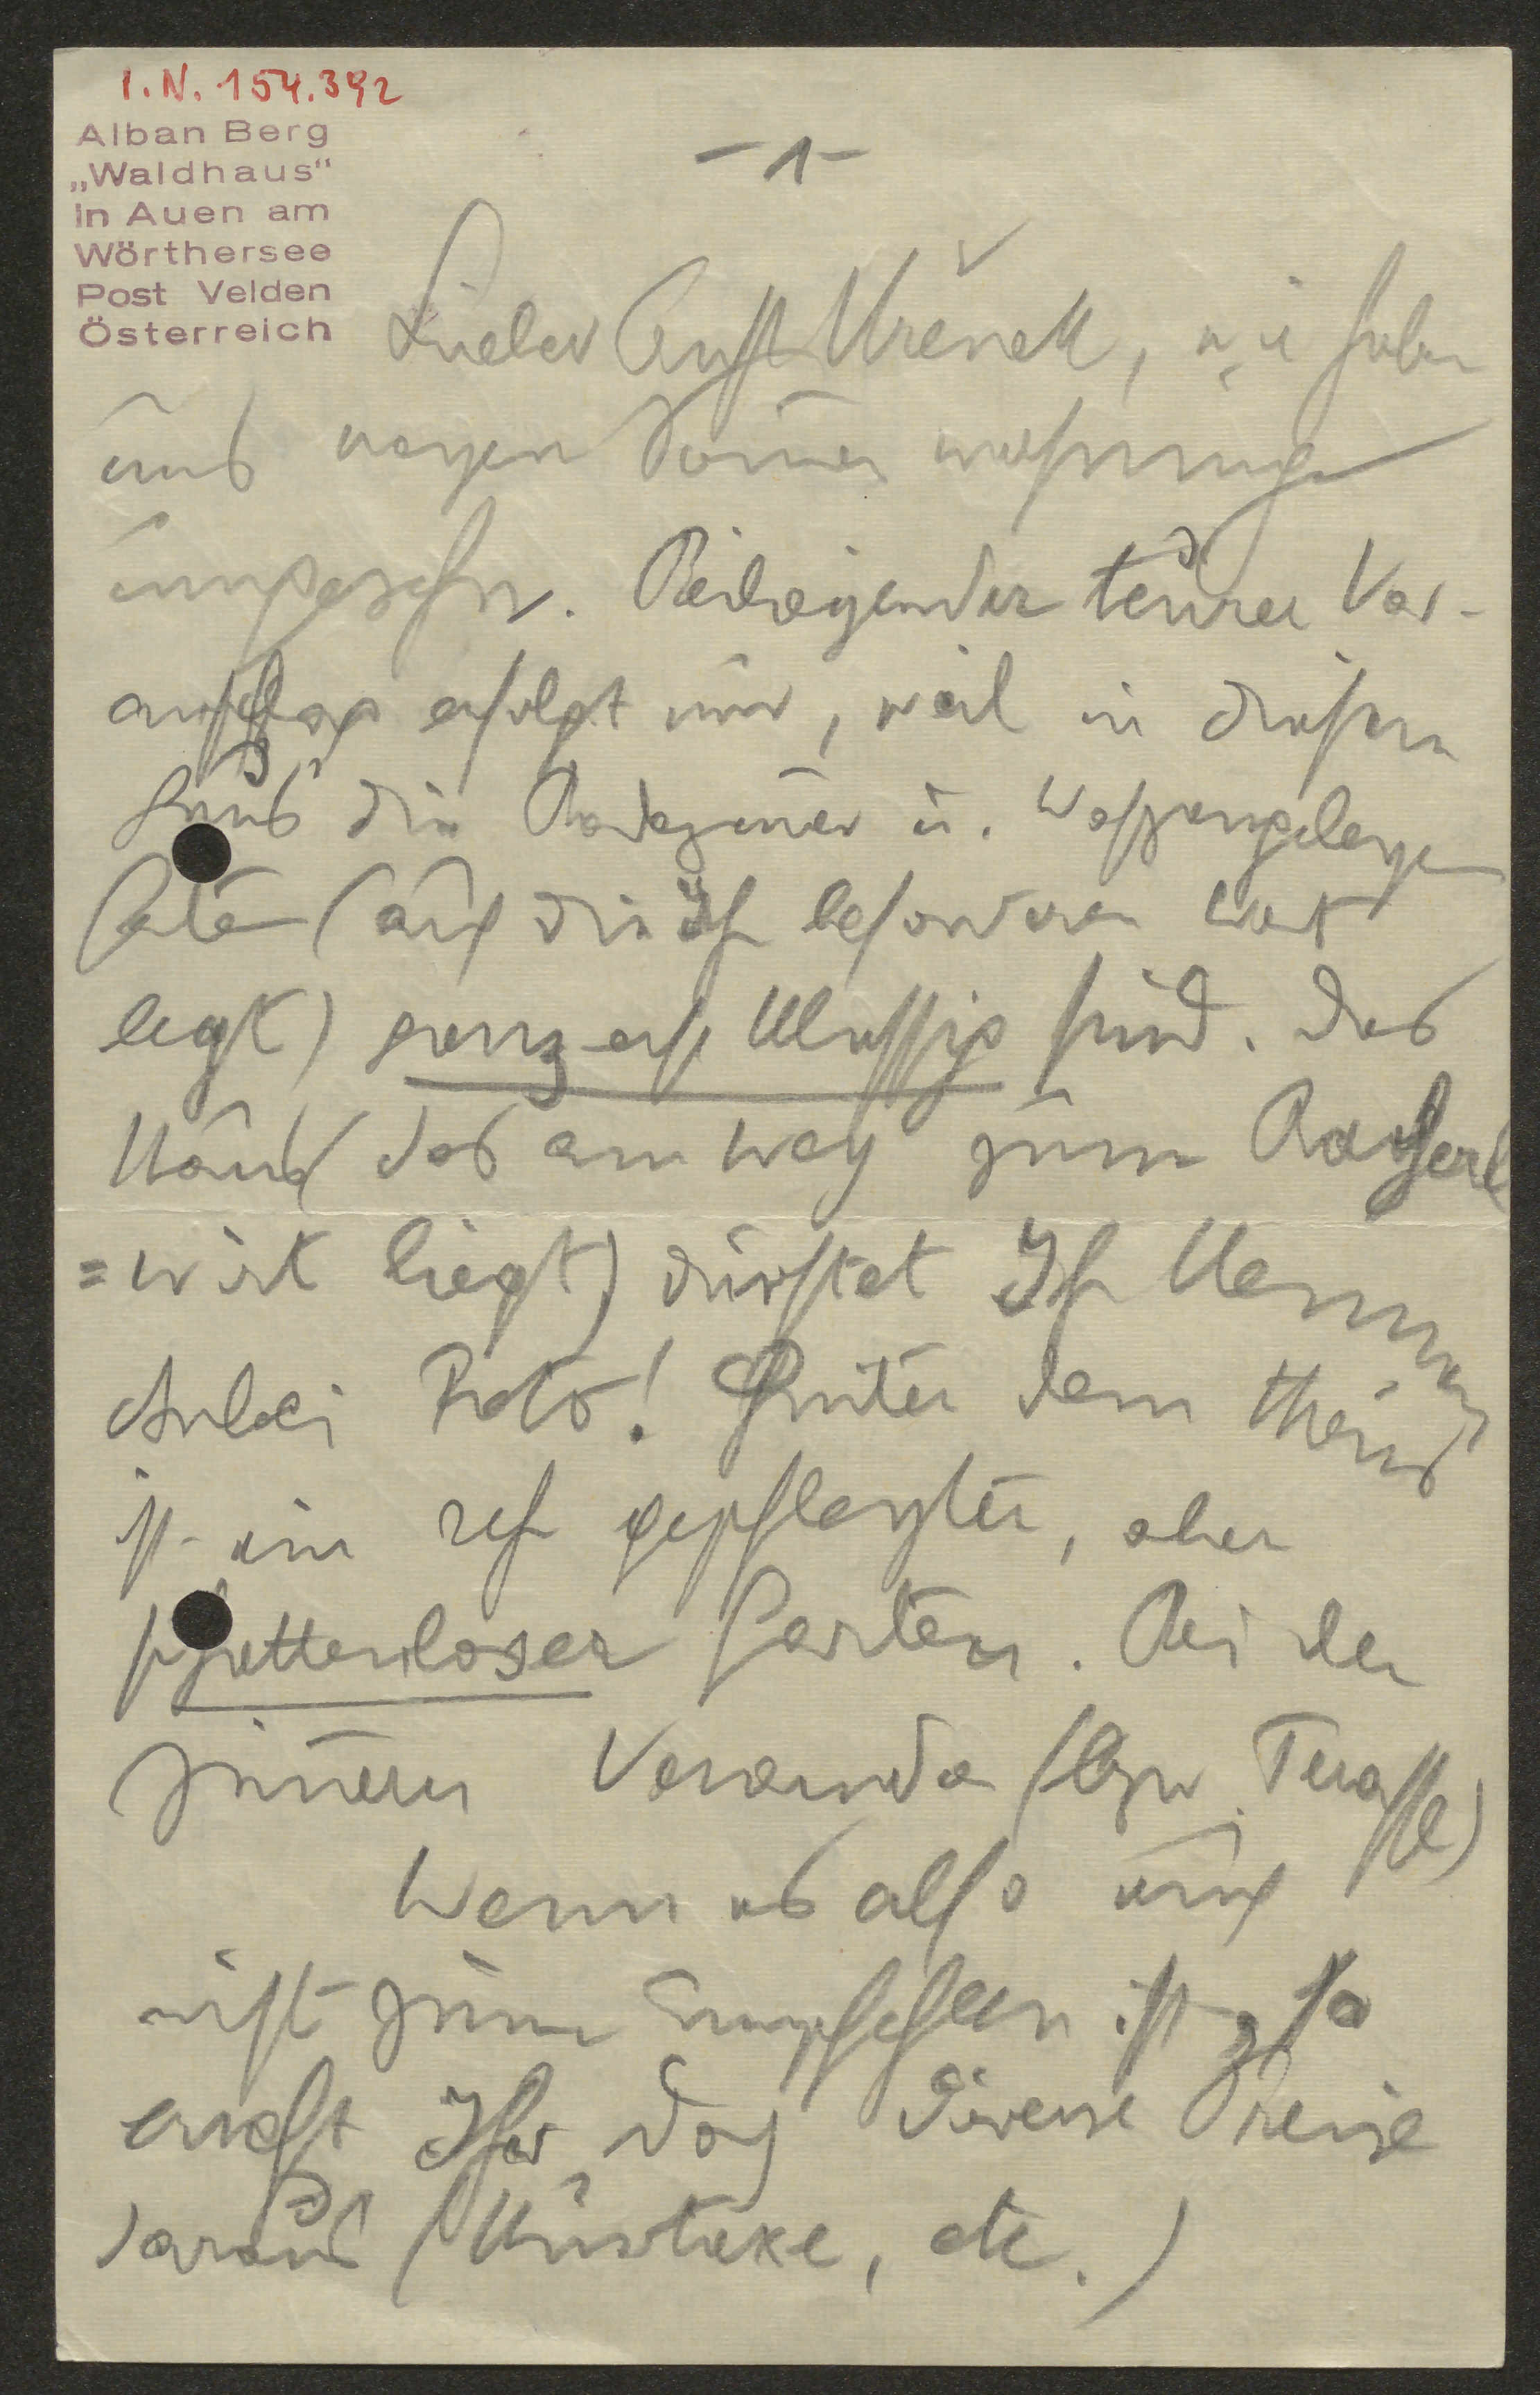 I.N. 154.392
Alban Berg
„Waldhaus“
in Auen am
Wörthersee
Post Velden
Österreich
-1-
Lieber Ernst Křenek, wir haben
uns wegen Sommerwohnungen
umgesehn. Beiliegender teurer Vor-
anschlag erfolgt nur, weil in diesem
Haus die Badezimmer u. Wasserangelegen
heiten (auf die Ihr besonderen Wert
legt) ganz erstklassig sind. Das
Haus (das am Weg zum
=wirt liegt) dürftet Ihr kennen
Anbei Foto! Hinter dem Haus
ist ein sehr gepflegter, aber
schattenloser Garten. Bei den
Zimmern Veranda (bzw. Terasse)
Wenn es also auch
nicht zum Empfehlen ist, so
erseht Ihr doch diverse Preise
daraus (Kurtaxe, etc.)